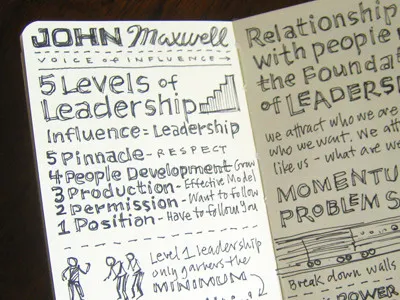 JOHN Maxwell
VOICE OF INFLUENCE
5 Levels of
Leadership
Influence = Leadership
5 Pinnacle - RESPECT
4 People Development - Grow
3 Production - Effective Model
2 Permission - Want to follow
1 Position - Have to follow you
Level 1 leadership
only garners the
MINIMUM
Relationship
with people
the Foundat
of LEADERS
we attract who we are
who we want. We att
like us - what are we
MOMENTU
PROBLEM S
Break down walls
POWER